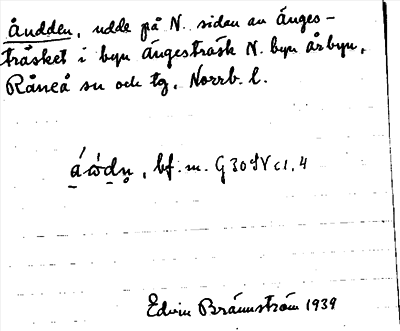 Åudden, udde på N. sidan av Änges-
träsket i byn Ängesträsk N. byn Årbyn,
Råneå sn och tg, Norrb. l.
bf. m. G 30 SV c1, 4
Edvin Brännström 1939